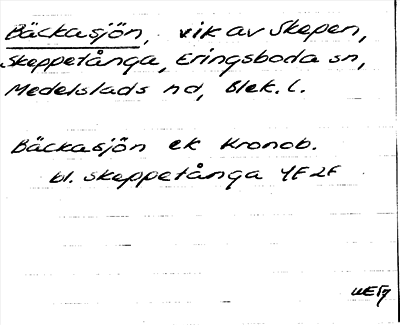 Bäckasjön, vik av Skepen,
Skeppetånga, Eringsboda sn,
Medelslads hd, Blek. l.
Bäckasjön ek Kronob.
bl. skeppetånga 4F2F